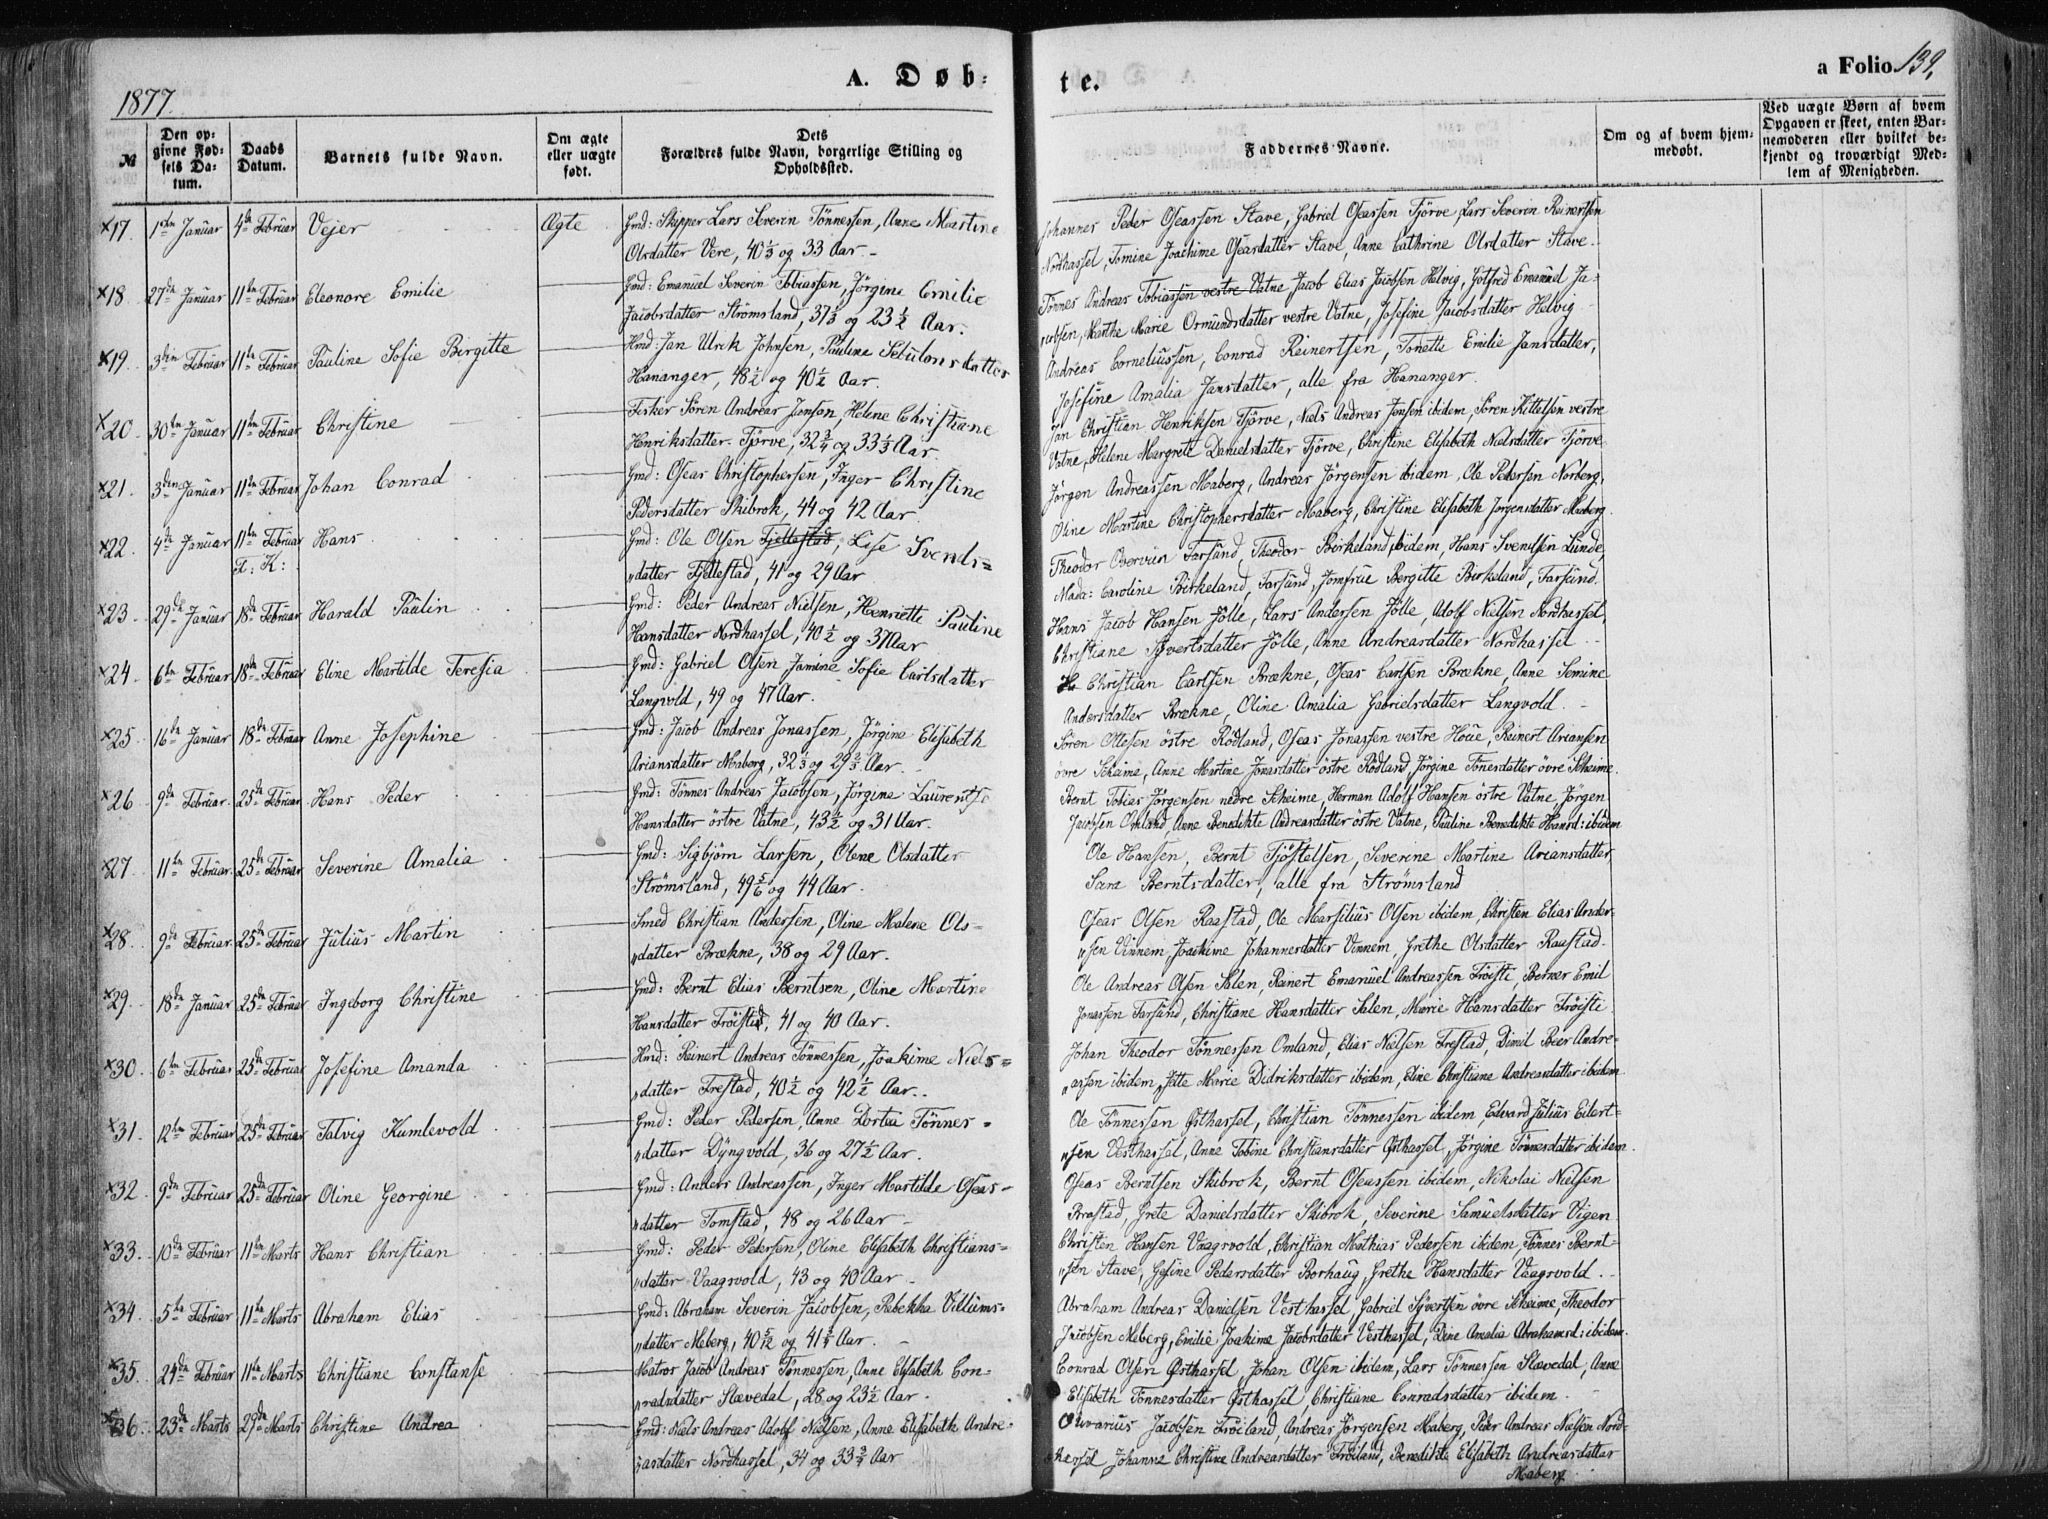 1877.
A. Døb-
te.
a Folio 139,
№
Den op-
givne Fød-
sels Da-
tum.
Daabs
Datum.
Barnets fulde Navn.
Om ægte
eller uægte
født.
Dets
Forældres fulde Navn, borgerlige Stilling og
Opholdssted.
Faddernes Navne.
Om og af hvem hjem-
medøbt.
Ved uægte Børn af hvem
Opgaven er skeet, enten Bar-
nemoderen eller hvilket be-
kjendt og troværdigt Med-
lem af Menigheden.
×17. 1ste Januar 4de Februar Vejer Ægte Gmd: Skipper Lars Severin Tönnessen, Anne Martine
Olsdatter Vere, 40 1/3 og 33 Aar.
Johannes Peder Oseassen Stave, Gabriel Oseassen Tjörve, Lars Severin Reinertsen
Nordhassel, Tomine Joachime Oseasdatter Stave, Anne Cathrine Olsdatter Stave.
×18 27de Januar 11te Februar Eleonore Emilie Gmd: Emanuel Severin Tobiassen, Jörgine Emilie
Jacobsdatter Strömsland, 37 1/3 og 23 1/2 Aar.
Tönnes Andreas Tobiassen vestre Vatne Jacob Elias Jacobsen Helvig, Gotfred Emanuel Ja-
cobsen, Marthe Marie Osmundsdatter vestre Vatne, Josefine Jacobsdatter Helvig
×19. 3die Februar 11te Februar Pauline Sofie Birgitte Hmd: Jan Ulrik Johnsen, Pauline Sebulonsdatter
Hananger, 48 1/2 og 40 1/2 Aar.
Andreas Corneliussen, Conrad Reinertsen, Tonette Emilie Jansdatter,
Josefine Amalia Jansdatter, alle fra Hananger.
×20. 30te Januar 11te Februar Christine Fisker Sören Andreas Jonson, Helene Christiane
Henriksdatter Tjörve, 32 3/4 og 33 1/3 Aar.
Jan Christian Henriksen Tjörve, Niels Andreas Jensen ibidem, Sören Kittelsen vestre
Vatne, Helene Margrete Danielsdatter Tjörve, Christine Elisabeth Nielsdatter Tjörve
×21. 3die Januar 11te Februar Johan Conrad Gmd: Oseas Christophersen, Inger Christine
Pedersdatter Skibrok, 44 og 42 Aar.
Jörgen Andreassen Maberg, Andreas Jörgensen ibidem, Ole Pedersen Norberg,
Oline Martine Christophersdatter Maberg, Christine Elisabeth Jörgensdatter Maberg.
×22. 4de Januar 11te Februar Hans Gmd: Ole Olsen Fjellestad, Lise Svends=
F: K:
datter Fjellestad, 41 og 29 Aar
Theodor Overvien Farsund, Theodor Birkeland ibidem, Hans Svendsen Lunde,
Mada: Caroline Birkeland, Farsund, Jomfrue Bergitte Birkeland, Farsund.
×23. 29de Januar 18de Februar Harald Paulin Gmd: Peder Andreas Nielsen, Henriette Pauline
Hansdatter Nordhassel, 40 1/2 og 37 Aar
Hans Jacob Hansen Jölle, Lars Andersen Jölle, Adolf Nielsen Nordhassel,
Christiane Sjvertsdatter Jölle, Anne Andreasdatter Nordhassel
×24. 6te Februar 18de Februar Eline Martilde Teresia Gmd: Gabriel Olsen Jamine Sofie Carlsdatter
Langvold, 49 og 47 Aar.
Christian Carlsen Brækne, Oseas Carlsen Brækne, Anne Semine
Andersdatter Brækne, Oline Amalia Gabrielsdatter Langvold.
×25 16de Januar 18de Februar Anne Josephine Gmd: Jacob Andreas Jonassen, Jörgine Elisabeth
Ariansdatter Maberg, 32 1/3 og 29 2/3 Aar
Sören Ottesen östre Rödland, Oseas Jonassen vestre Hoüe, Reinert Ariansen
övre Skeime, Anne Martine Jonasdatter östre Rödland, Jörgine Tönesdatter övre Skeime.
×26 9de Februar. 25de Februar. Hans Peder Gmd: Tönnes Andreas Jacobsen, Jörgine Laurentse
Hansdatter östre Vatne, 43 1/2 og 31 Aar.
Bernt Tobias Jörgensen nedre Skeime, Herman Adolf Hansen östre Vatne, Jörgen
Jacobsen Omland, Anne Benedikte Andreasdatter östre Vatne, Pauline Benedikte Hansd: ibidem
×27. 11te Februar. 25de Februar. Severine Amalia Gmd: Sigbjörn Larsen, Olene Olsdatter
Strömsland, 49 5/6 og 44 Aar.
Ole Hansen, Bernt Tjöstelsen, Severine Martine Ariansdatter
Sara Berntsdatter, alle fra Strömsland
×28. 9de Februar. 25de Februar. Julius Martin Smed Christian Andersen, Oline Malene Ols=
datter Brækne, 38 og 29 Aar.
Oseas Olsen Raastad, Ole Marsilius Olsen ibidem, Christen Elias Ander-
sen Vinnem, Joakime Johannesdatter Vinnem, Grethe Olsdatter Raastad.
×29. 18de Januar 25de Februar Ingeborg Christine Gmd: Bernt Elias Berntsen, Oline Martine
Hansdatter Tröisted, 41 og 40 Aar.
Ole Andreas Olsen Salen, Reinert Emanuel Andreassen Tröisti, Berner Emil
Jonassen Farsund, Christiane Hansdatter Salen, Marie Hansdatter Tröisti.
×30. 6te Februar 25de Februar Josefine Amanda Hmd: Reinert Andreas Tönnessen, Joakime Niels=
datter Frestad, 40 1/2 og 42 1/2 Aar.
Johan Theodor Tönnessen Omland, Elias Nielsen Frestad, Dimil Beer Andre-
assen ibidem, Jette Marie Didriksdatter ibidem, Eline Christiane Andreasdatter ibidem
×31. 12te Februar 25de Februar Talvig Kumlevold Gmd: Peder Pedersen, Anne Dortia Tönnes=
datter Dyngvold, 36 og 27 1/2 Aar.
Ole Tönnessen Østhassel, Christian Tönnessen ibidem, Edvard Julius Eilert-
sen Vesthassel, Anne Tobine Christiansdatter Østhassel, Jörgine Tönnesdatter ibidem.
×32. 9de Februar 25de Februar Oline Georgine Gmd: Anders Andreassen, Inger Martilde Oseas=
datter Tomstad, 48 og 26 Aar
Oseas Berntsen Skibrok, Bernt Oseassen ibidem, Nikolai Nielsen
Brastad, Grete Danielsdatter Skibrok, Severine Samuelsdatter Vigen
×33. 10de Februar 11te Marts Hans Christian Gmd: Peder Pedersen, Oline Elisabeth Christians=
datter Vaagsvold, 43 og 40 Aar
Christen Hansen Vaagsvold, Christian Mathias Pedersen ibidem, Tönnes Bernt-
sen Stave, Gesine Pedersdatter Borhaug, Grethe Hansdatter Vaagsvold.
×34. 5te Februar 11te Marts Abraham Elias Gmd: Abraham Severin Jacobsen, Rebekka Villums=
datter Meberg, 40 5/12 og 41 3/4 Aar.
Abraham Andreas Danielsen Vesthassel, Gabriel Sjvertsen övre Skeime, Theodor
Jacobsen Meberg, Emilie Joakime Jacobsdatter Vesthassel, Dine Amalia Abrahamsd: ibidem.
×35. 24de Februar 11te Marts Christiane Constanse Matros Jacob Andreas Tönnessen, Anne Elisabeth Con-
radsdatter Slævedal, 28 og 23 1/2 Aar.
Conrad Olsen Østhassel, Johan Olsen ibidem, Lars Tönnessen Slævedal, Anne
Elisabeth Tönnesdatter Østhassel, Christiane Conradsdatter ibidem
×36. 23de Marts 29de Marts Christine Andrea Gmd: Niels Andreas Adolf Nielsen, Anne Elisabeth Andre-
asdatter Nordhassel, 34 og 33 3/4 Aar
Jacobsen Tröiland, Andreas Jörgensen Maberg, Peder Andreas Nielsen Nord-
hassel Johanne Christine Andreasdatter Tröiland, Benedikte Elisabeth Andreasdatter
Maberg